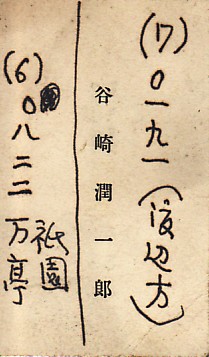 (17)〇一九一(渡辺方)
谷崎潤一郎
(6)〇八二二 祇園
万亭